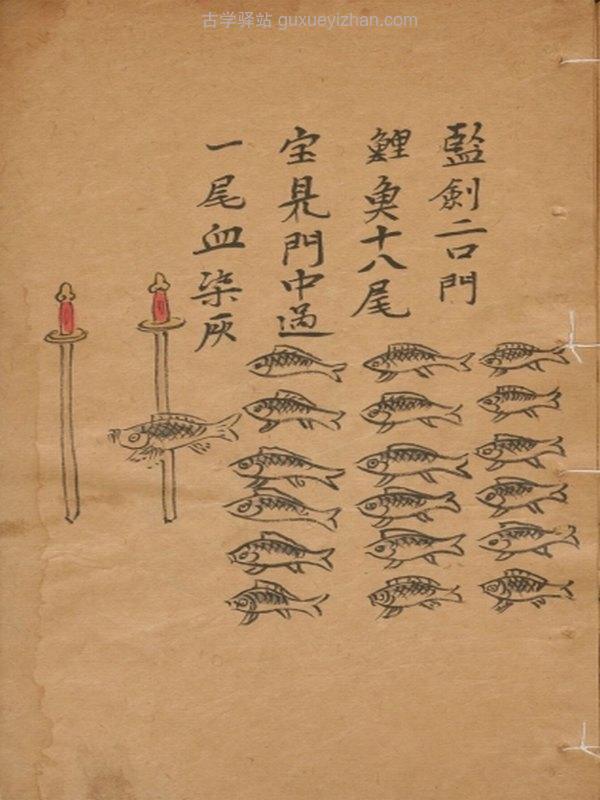 古学驿站 guxueyizhan.com
藍劍二口門
鯉魚十八尾
宝見門中過
一尾血染灰